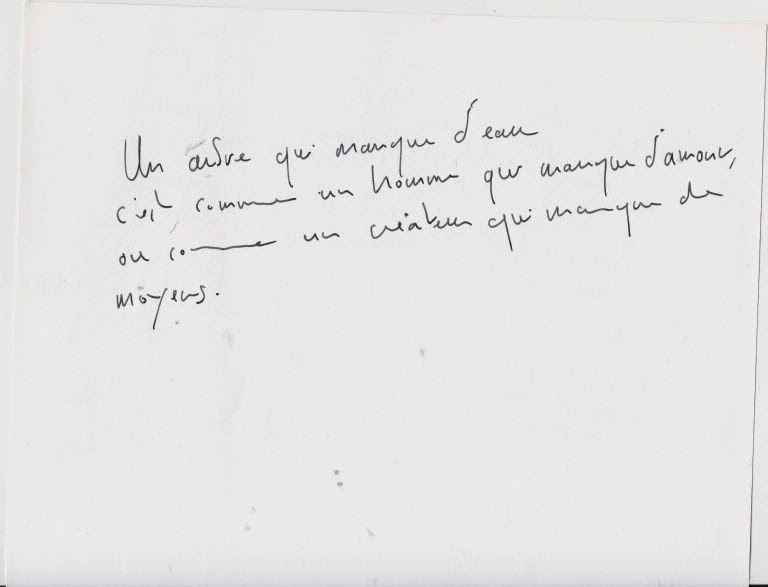 Un arbre qui manque d'eau
c'est comme un homme qui manque d'amour,
ou comme un créateur qui manque de
moyens.